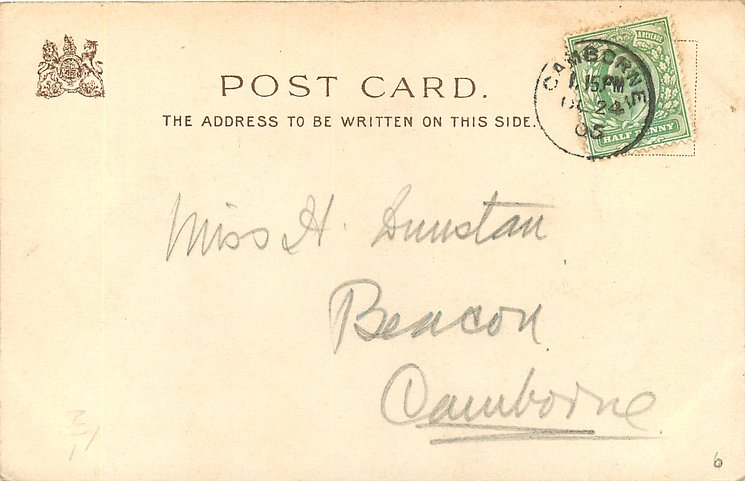 POST CARD.
THE ADDRESS TO BE WRITTEN ON THIS SIDE.
CAMBORNE
1.15PM
24
05
HALF PENNY
Miss H. Dunstan
Beacon
Camborne
6